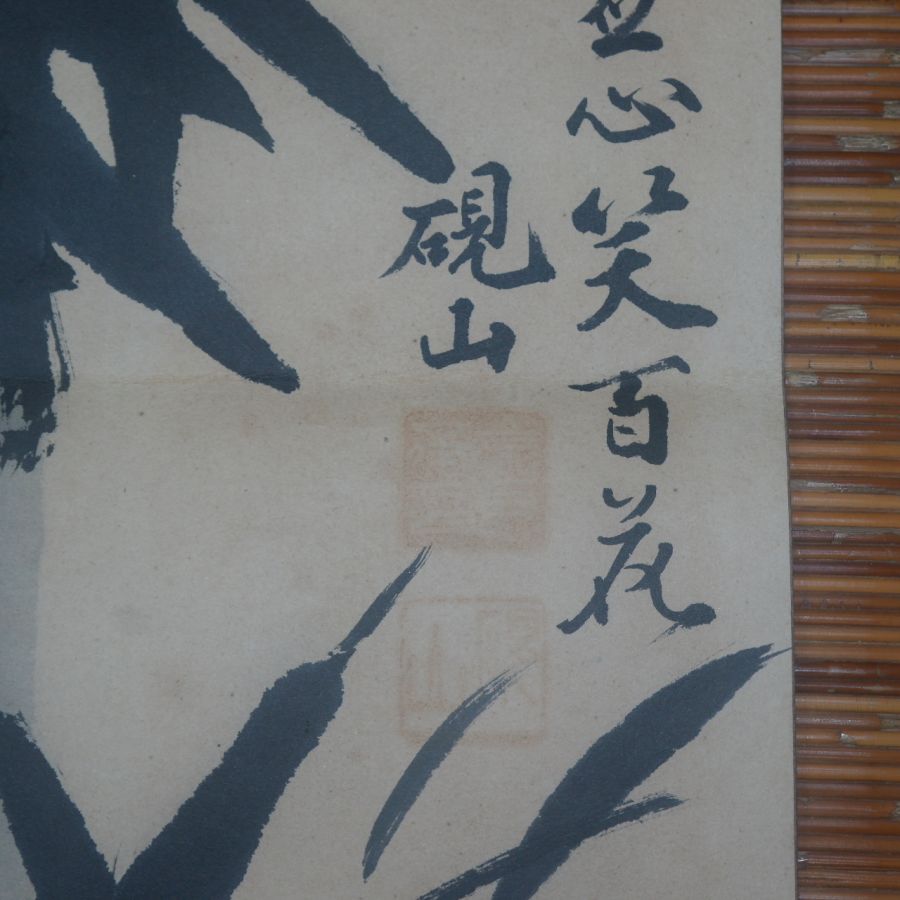 心笑百花
硯山